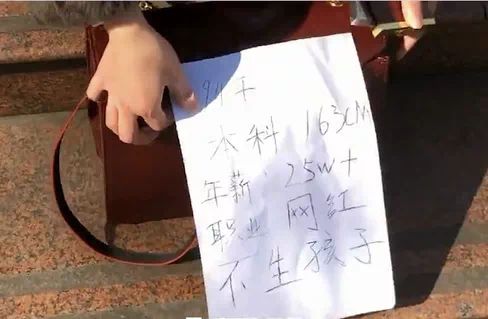 94年
本科 163cm
年薪:25w+
职业 网红
不生孩子